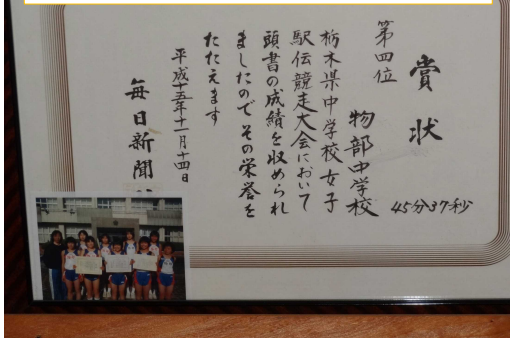 賞状
第四位
物部中学校
45分37秒
栃木県中学校女子
駅伝競走大会において
頭書の成績を収められ
ましたのでその栄誉を
たたえます
平成十五年十一月十四日
毎日新聞